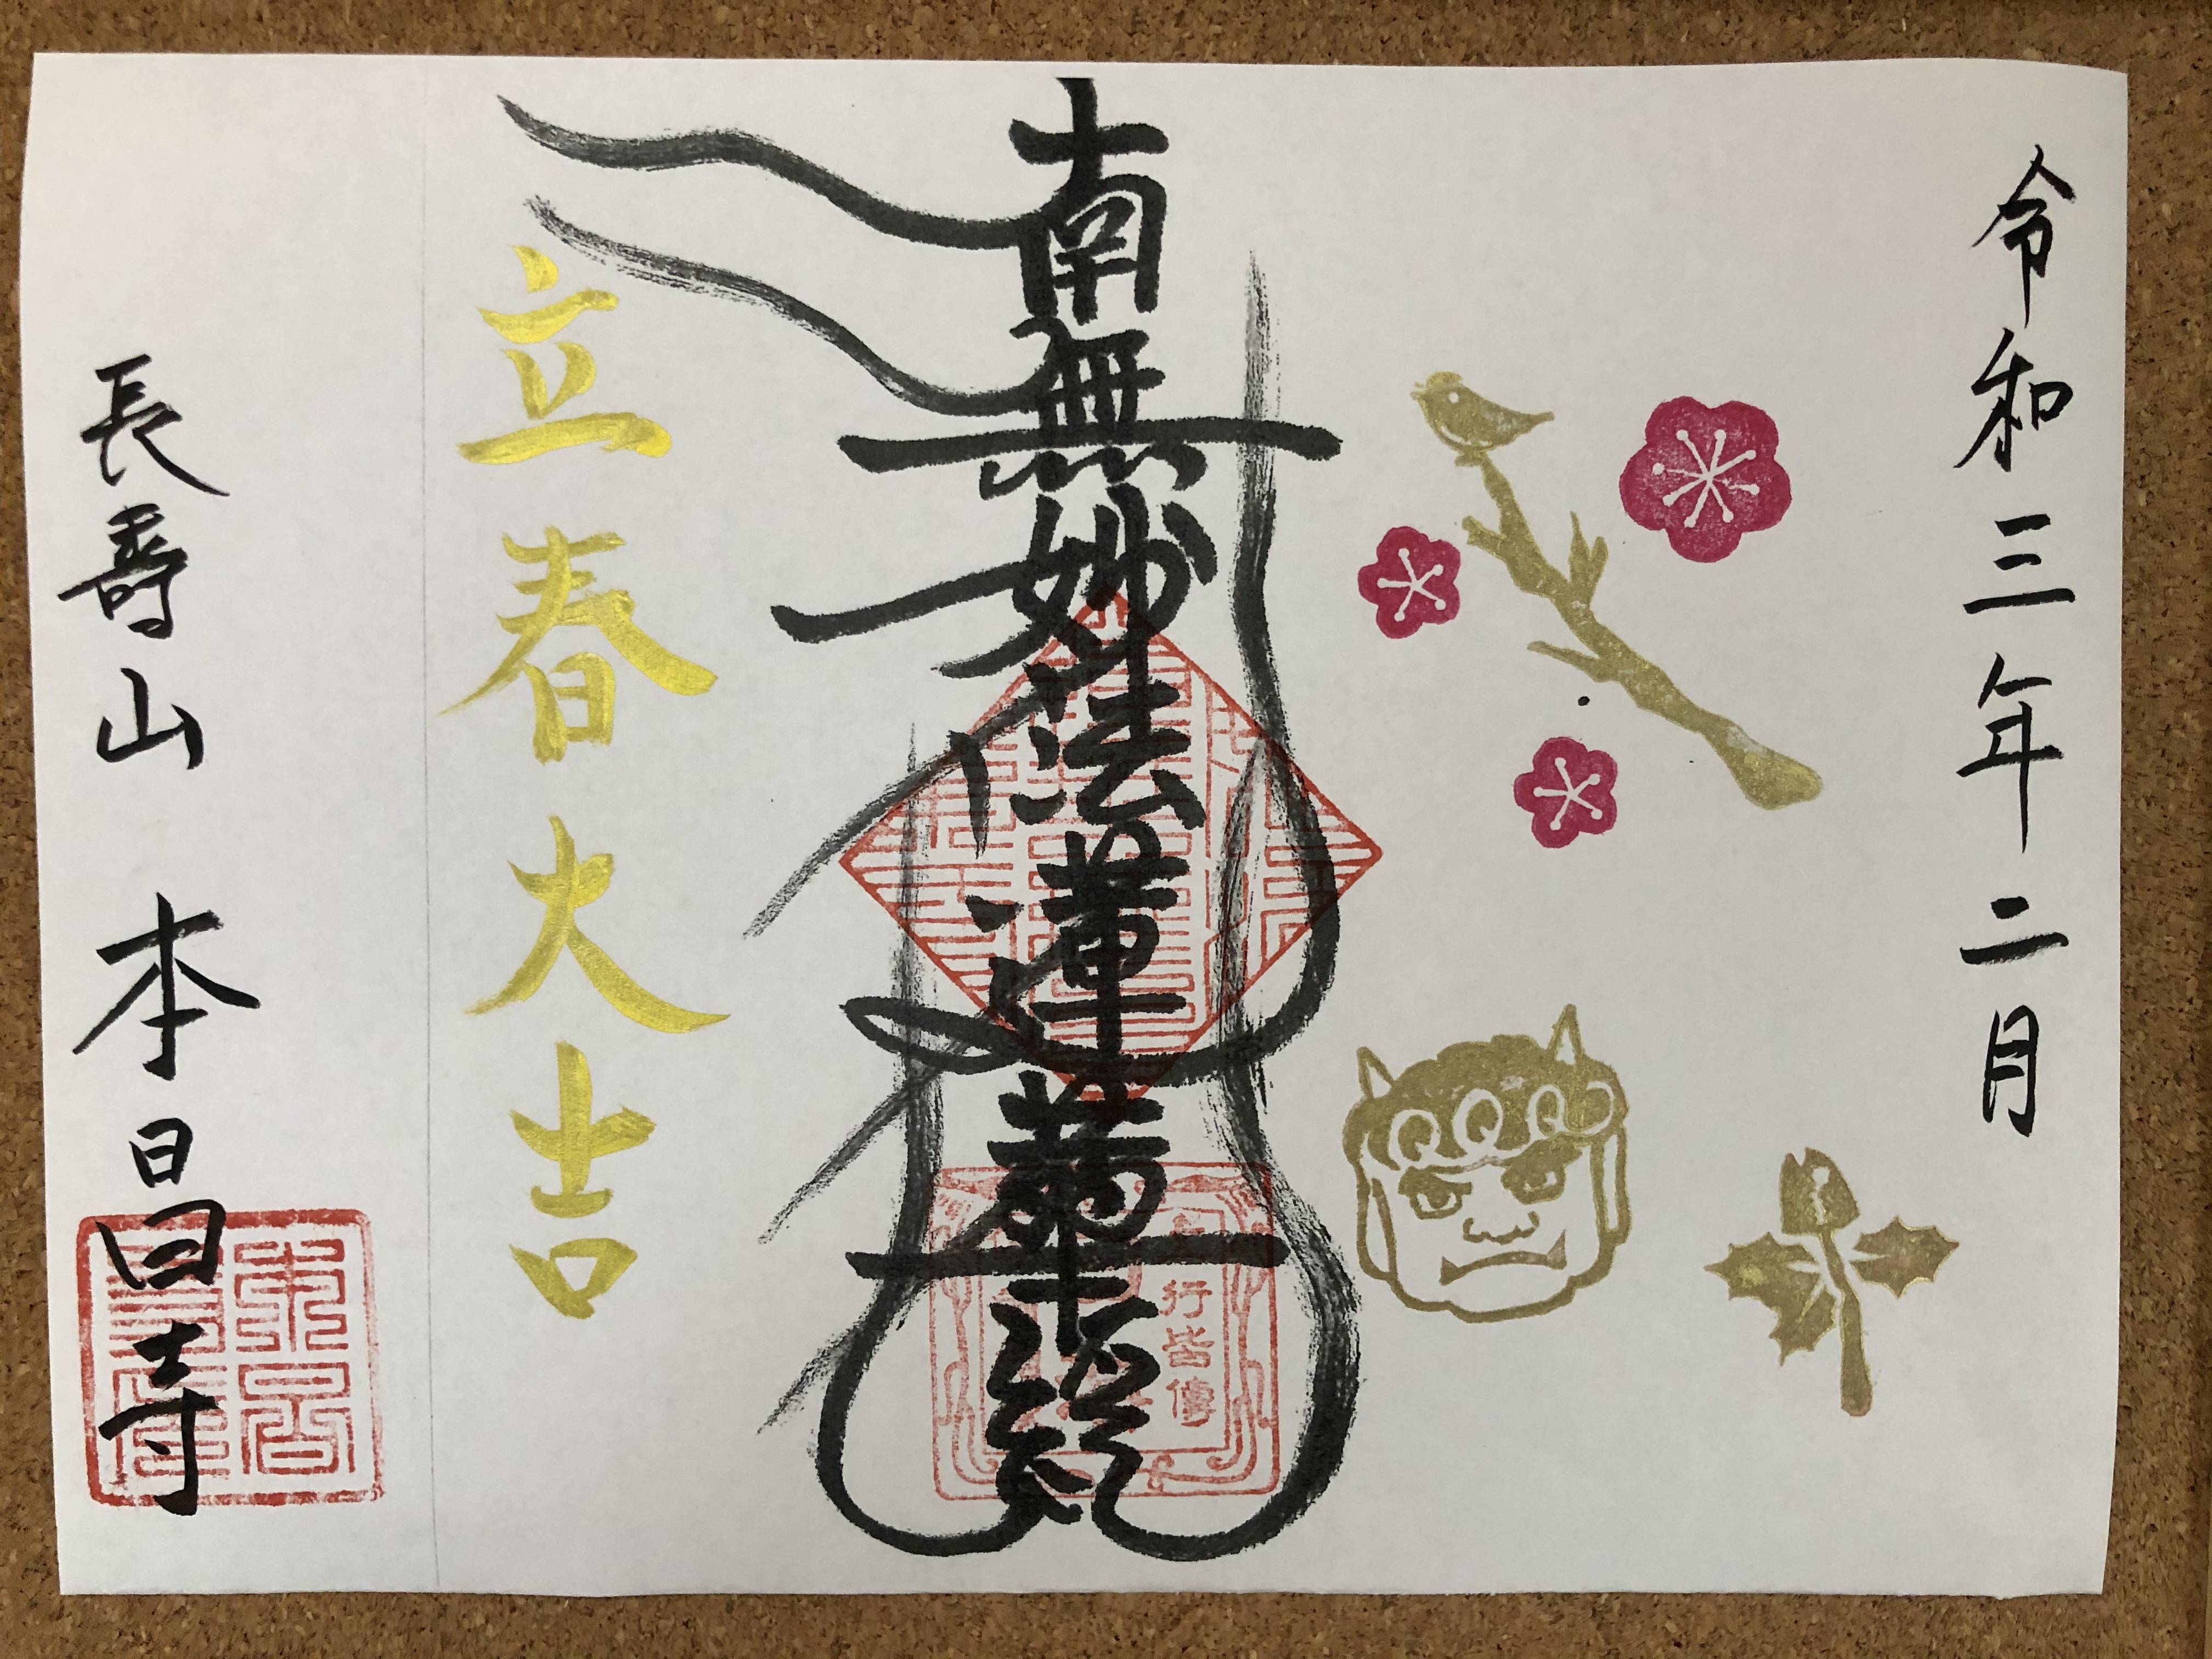 令和三年二月
南無妙法蓮華經
行皆傳
立春大吉
長壽山 本昌寺